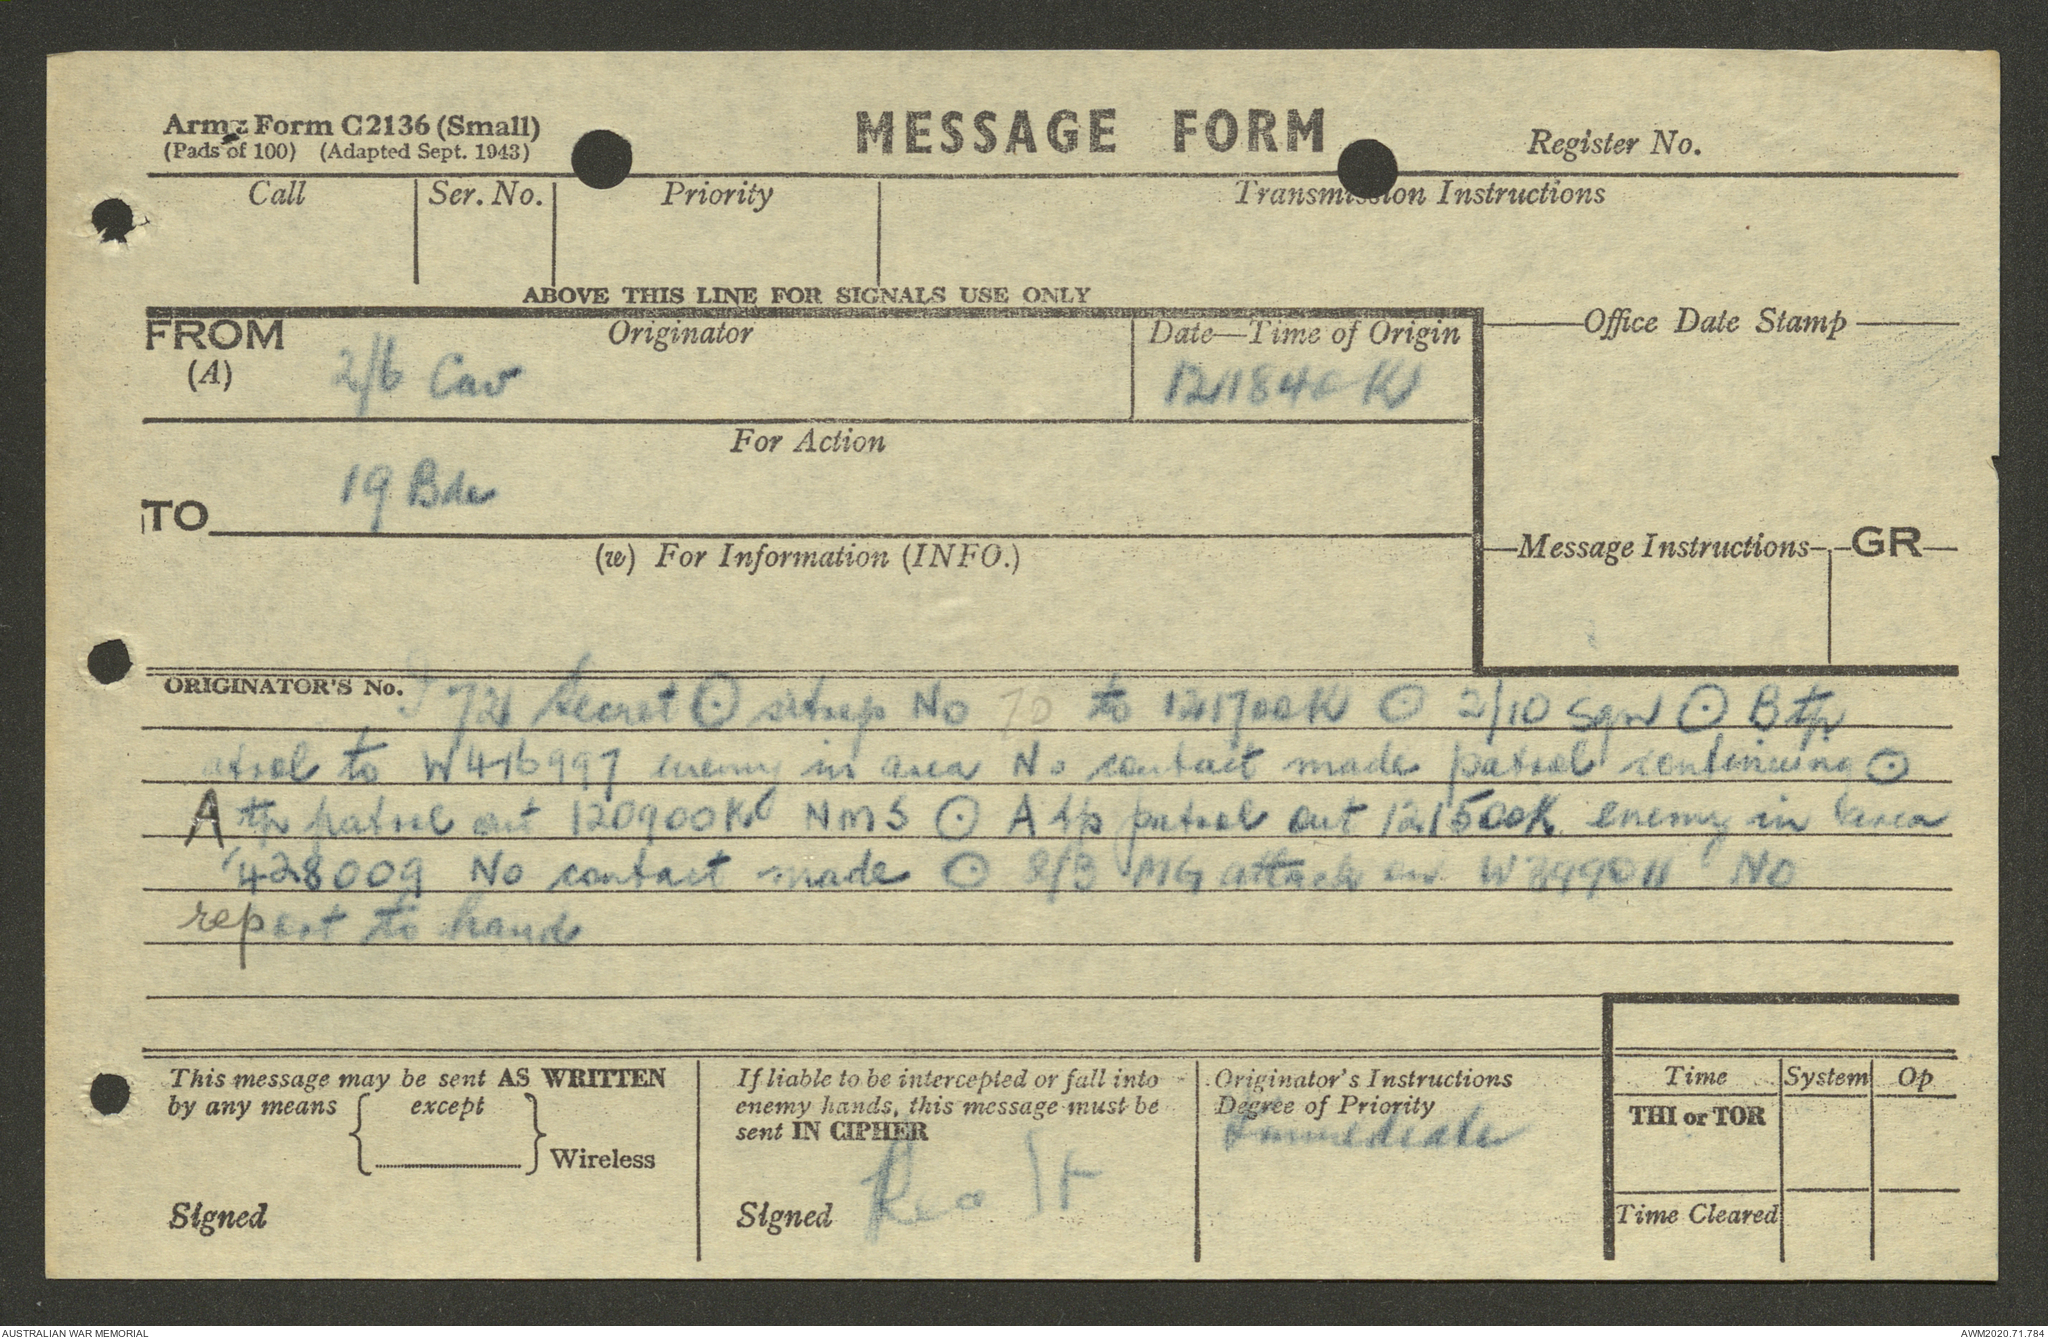 Army Form C2136 (Small)
(Pads of 100) (Adapted Sept. 1943)
MESSAGE FORM
Register No.
Call
Ser. No.
Priority
Transmission Instructions
ABOVE THIS LINE FOR SIGNALS USE ONLY
FROM
(A)
Originator
2/6 Cav
Date—Time of Origin
121840K
Office Date Stamp
For Action
TO
19 Bde
(w) For Information (INFO.)
Message Instructions
GR
ORIGINATOR'S No.
721 Secret ⊙ sitrep No 70 to 121700K ⊙ 2/10 Sqn ⊙ B tp
patrol to W416997 enemy in area No contact made patrol continuing ⊙
A tp patrol out 120900K NMS ⊙ A tp patrol out 121500K enemy in area
428009 No contact made ⊙ 2/3 MG attack on No
report to hand
This message may be sent AS WRITTEN
by any means { except } Wireless
Signed
If liable to be intercepted or fall into
enemy hands, this message must be
sent IN CIPHER
Signed
Originator's Instructions
Degree of Priority
Immediate
Time
System
Op
THI or TOR
Time Cleared
AUSTRALIAN WAR MEMORIAL
AWM2020.71.784